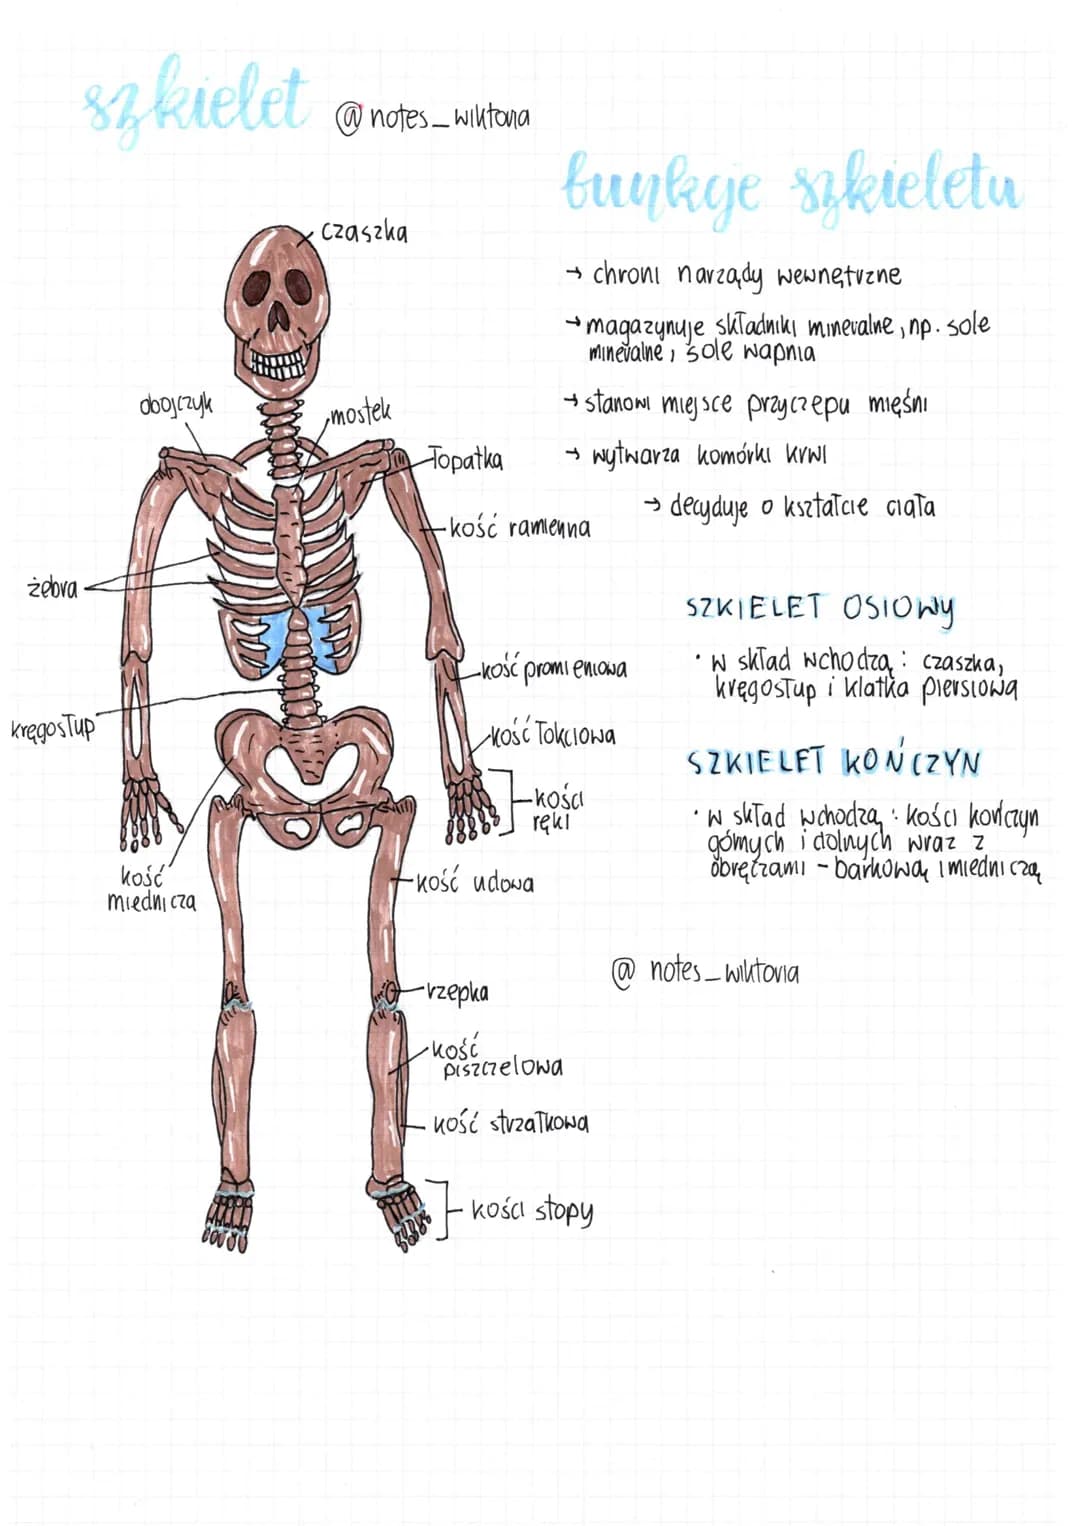 szkielet
@notes_wiktoria
funkcje szkieletu
→ chroni narządy wewnętrzne
→ magazynuje składniki mineralne, np. sole
mineralne, sole wapnia
→ stanowi miejsce przyczepu mięśni
→ wytwarza komórki krwi
→ decyduje o kształcie ciała
SZKIELET OSIOWY
• w skład wchodzą: czaszka,
kręgosłup i klatka piersiowa
SZKIELET KOŃCZYN
• w skład wchodzą: kości kończyn
górnych i dolnych wraz z
obręczami - barkową i miedniczą
@notes_wiktoria
czaszka
obojczyk
mostek
łopatka
kość ramienna
żebra
kość promieniowa
kręgosłup
kość łokciowa
kości
ręki
kość
miednicza
kość udowa
rzepka
kość
piszczelowa
kość strzałkowa
kości stopy